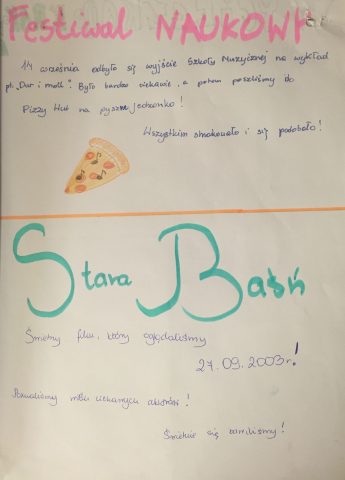 Festiwal NAUKOWY
14 września odbyło się wyjście Szkoły Muzycznej na wykład
pt. „Dur i moll". Było bardzo ciekawie, a potem poszliśmy do
Pizzy Hut na pyszne jedzonko!
Wszystkim smakowało i się podobało!
Stara Baśń
Śmieszny film, który oglądaliśmy
27.09.2003r!
Poznaliśmy wielu ciekawych aktorów!
Świetnie się bawiliśmy!